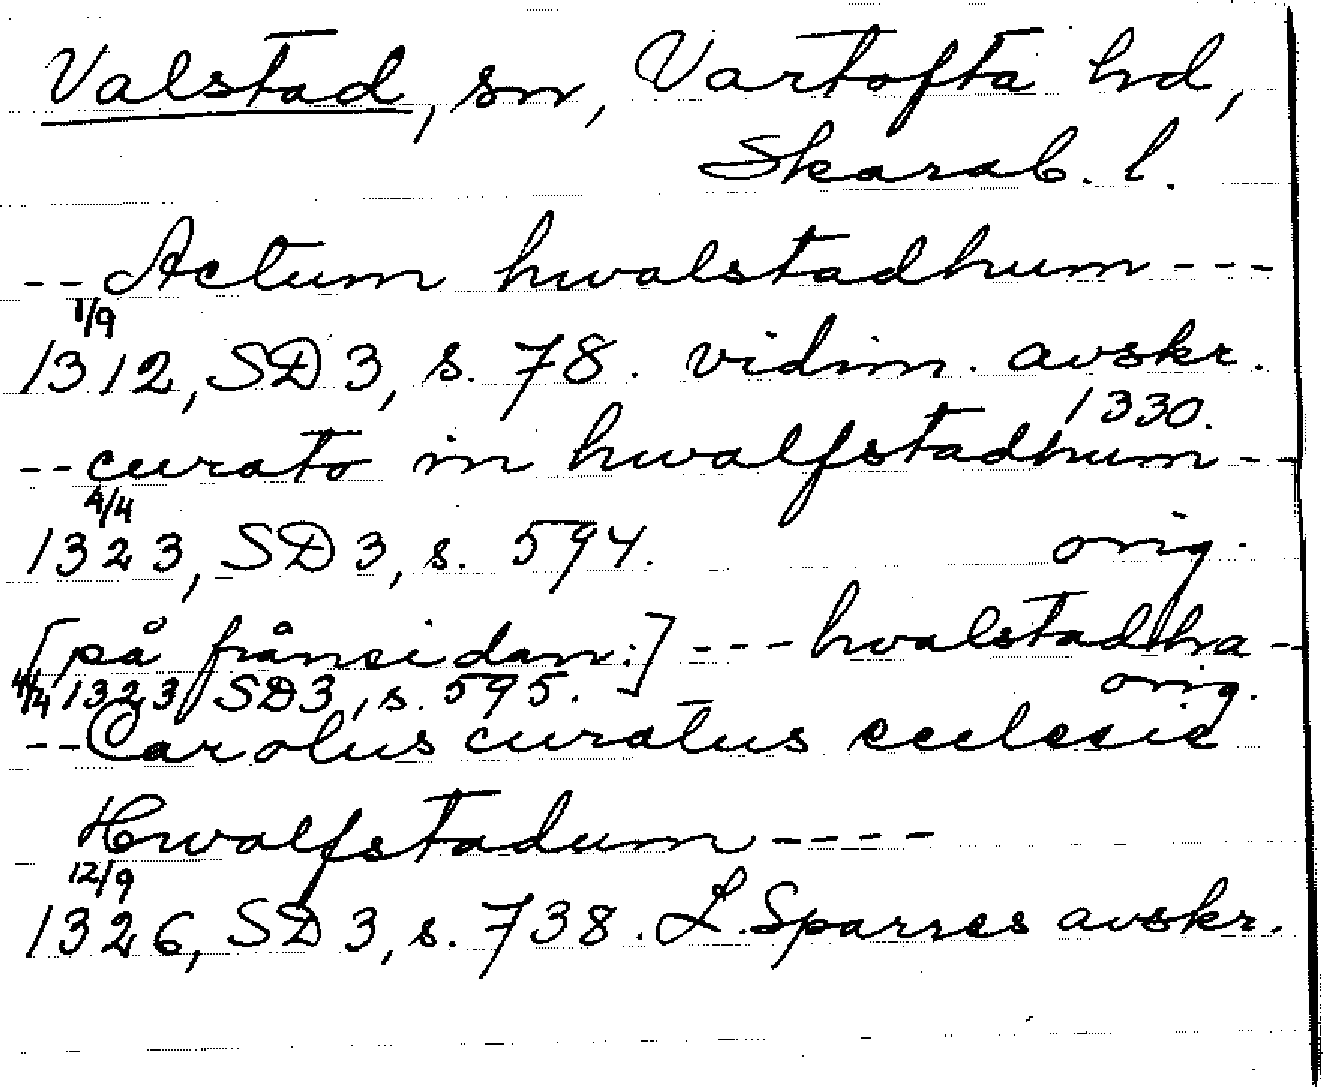 Valstad, sn, Vartofta hd,
Skarab. l.
-- Actum hwalstadhum ---
1/9
1312, SD 3, s. 78. vidim. avskr.
1330.
-- curato in hwalfstadhum --
4/4
1323, SD 3, s. 594. orig.
[på frånsidan:] --- hvalstadha --
4/4 1323 SD3, s. 595. orig.
-- Carolus curatus ecclesie
Hwalfstadum ----
12/9
1326, SD 3, s. 738. L. Sparres avskr.